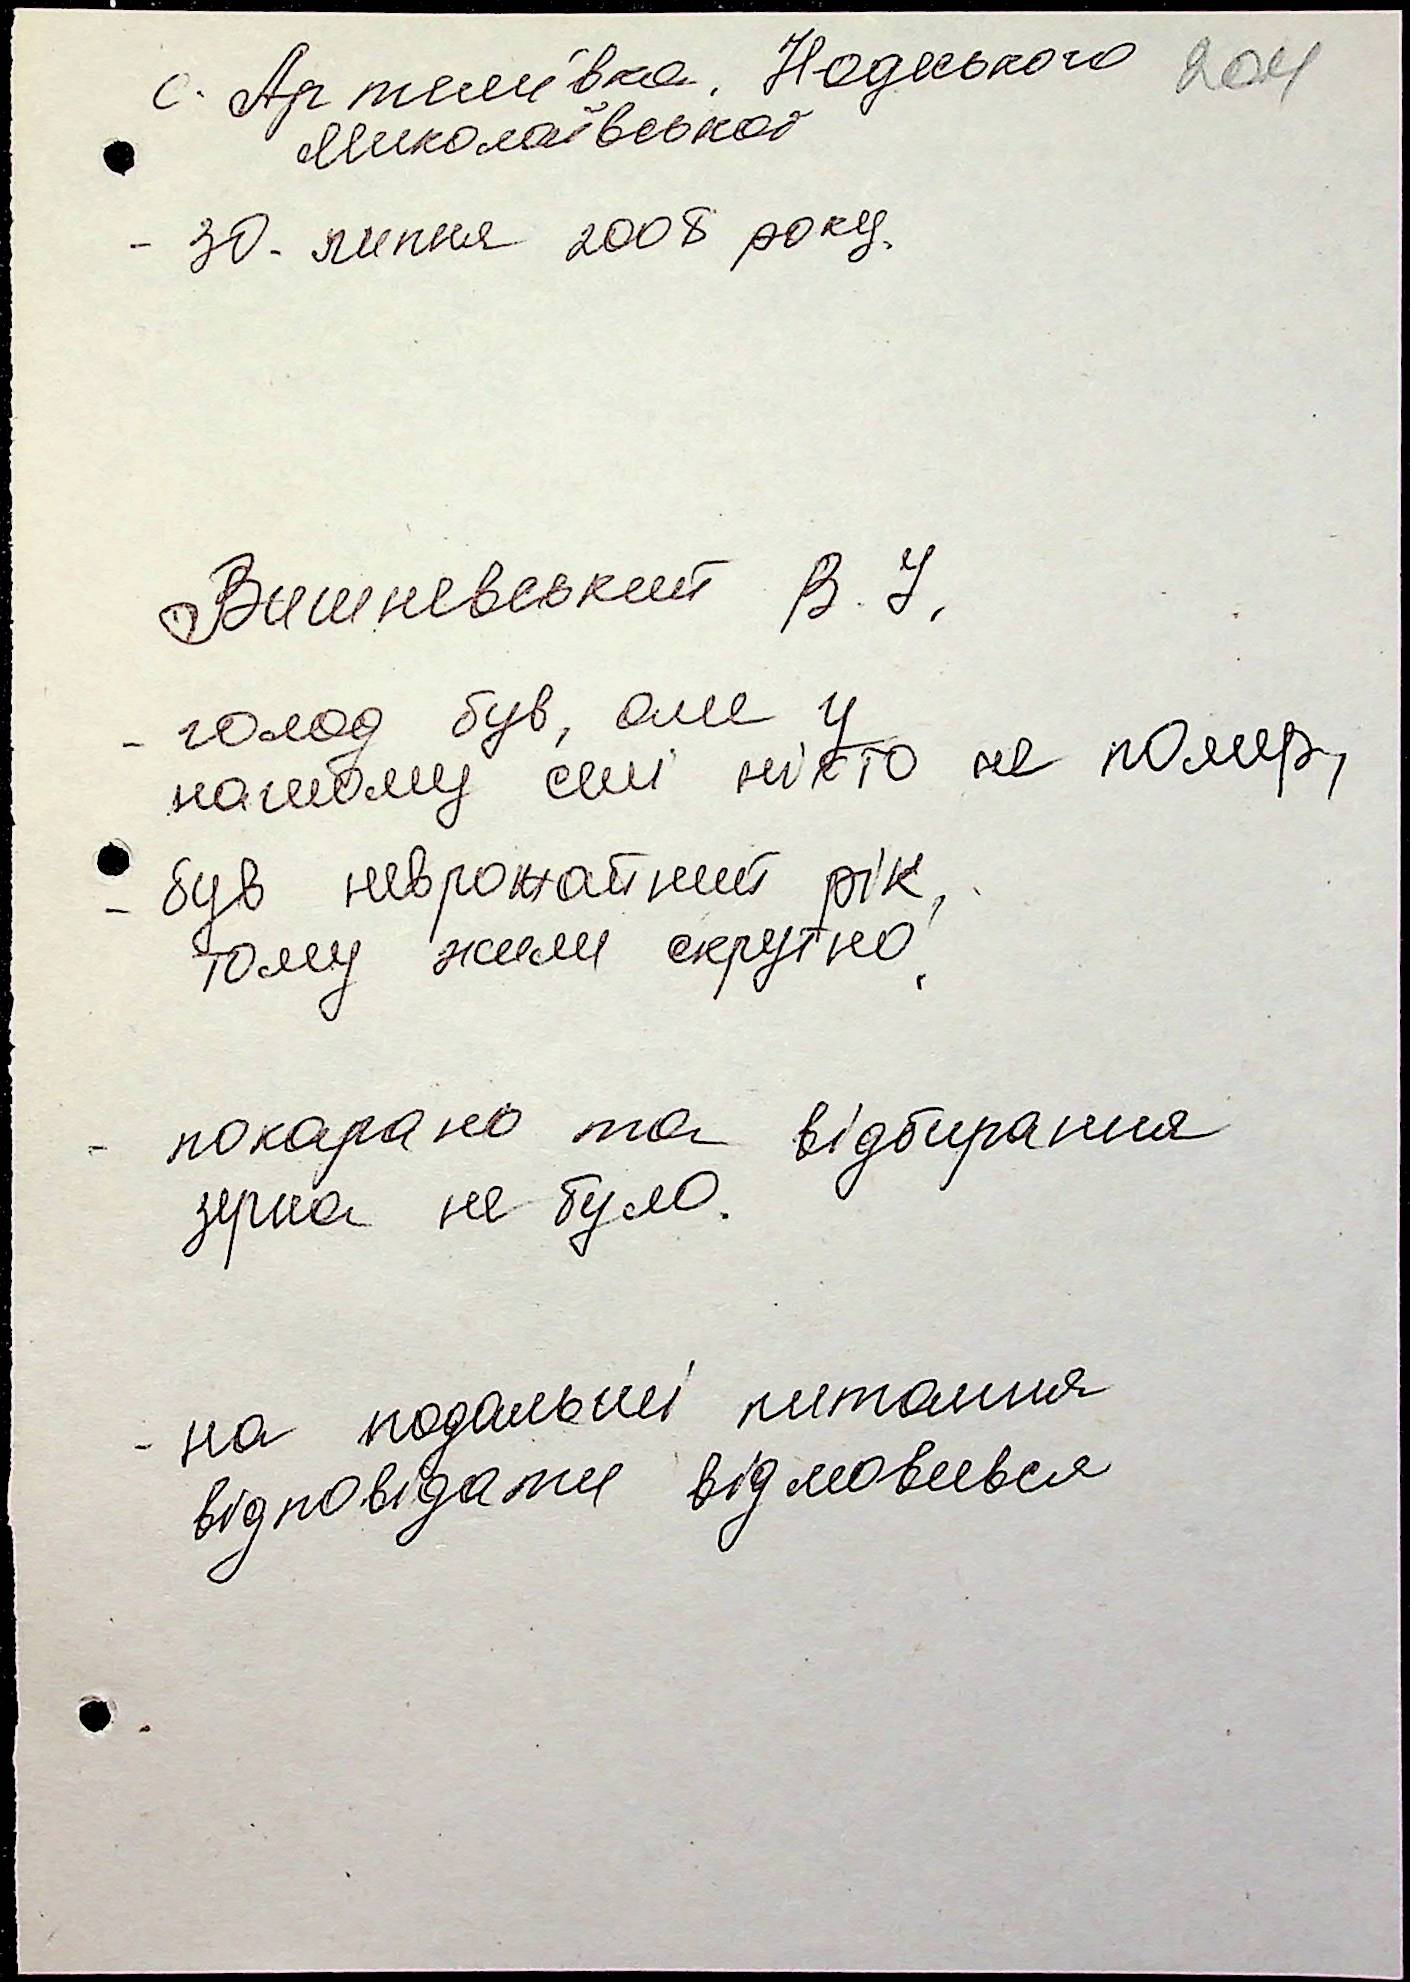 с. Артилівка, Кодиського 204
Миколаївської
- 30. липня 2008 року.
Вишневський В. У.
- голод був, але у
нашому селі ніхто не помер,
- був неврожайний рік,
тому жили скрутно.
- покарано та відбирання
зерна не було.
- на подальші питання
відповідати відмовився